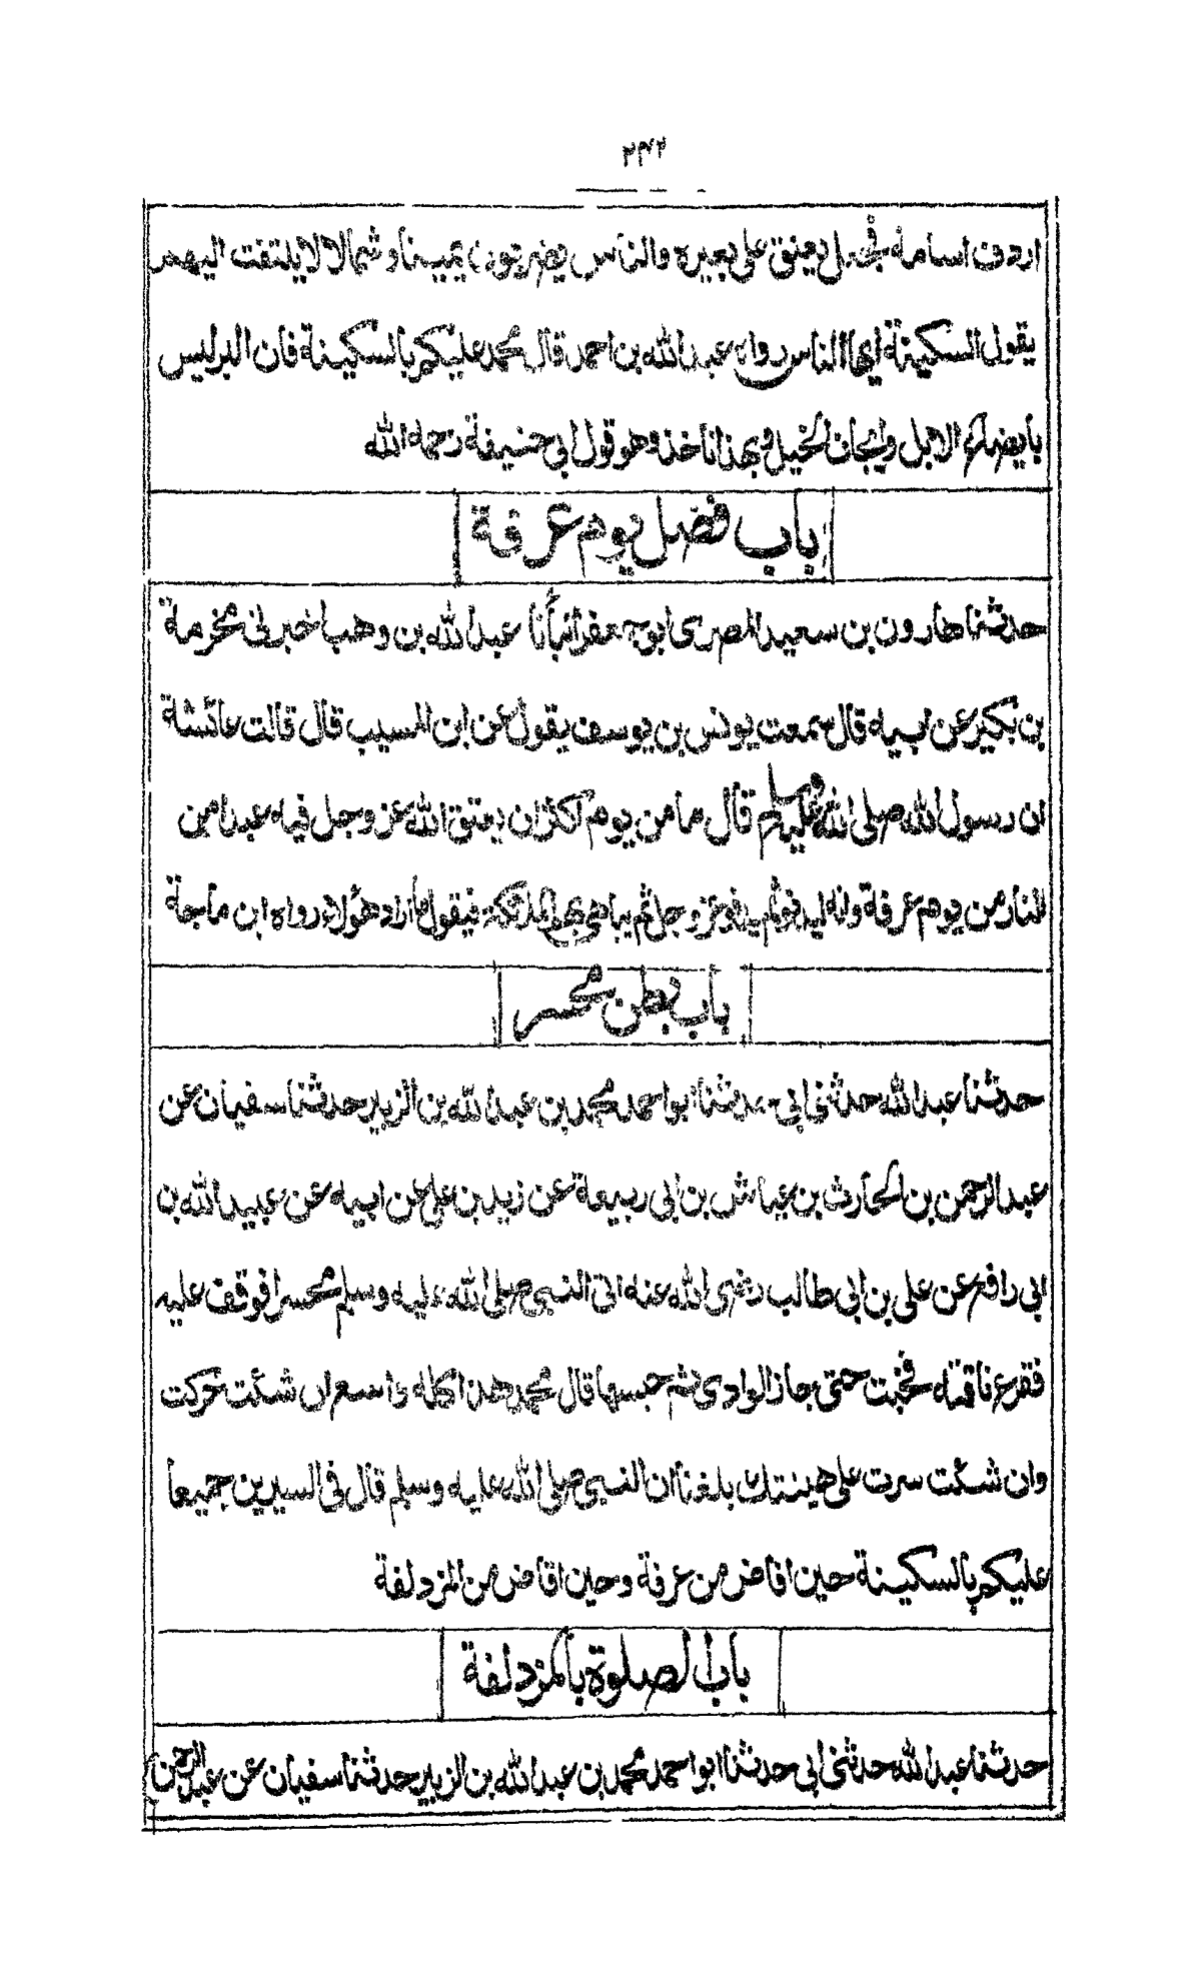 ۲۴۲
اردف اسامة فجعل يعنق على بعيره والناس يضربون يمينا وشمالا لا يلتفت اليهم
يقول السكينة ايها الناس رواه عبد الله بن احمد قال محمد عليكم بالسكينة فان البر ليس
بايضاع الابل وايجاف الخيل وبهذا ناخذ وهو قول ابي حنيفة رحمه الله
باب فضل يوم عرفة
حدثنا هارون بن سعيد المصرى ابو جعفر انبأنا عبد الله بن وهب اخبرني مخرمة
بن بكير عن ابيه قال سمعت يونس بن يوسف يقول عن ابن المسيب قال قالت عائشة
ان رسول الله صلى الله عليه وسلم قال ما من يوم اكثر ان يعتق الله عز وجل فيه عبدا من
النار من يوم عرفة وانه ليدنو ثم عز وجل ثم يباهي بهم الملائكة فيقول ما اراد هؤلاء رواه ابن ماجة
باب بطن محسر
حدثنا عبد الله حدثني ابي حدثنا ابو احمد محمد بن عبد الله بن الزبير حدثنا سفيان عن
عبد الرحمن بن الحارث بن عياش بن ابي ربيعة عن زيد بن علي عن ابيه عن عبيد الله بن
ابي رافع عن على بن ابي طالب رضى الله عنه اتى النبي صلى الله عليه وسلم محسرا فوقف عليه
فقرع ناقته فخبت حتى جاز الوادى ثم حبسها قال محمد هذا كله واسع ان شئت حركت
وان شئت سرت على هينتك بلغنا ان النبي صلى الله عليه وسلم قال في السيرين جميعا
عليكم بالسكينة حين افاض من عرفة وحين افاض من المزدلفة
باب الصلوة بالمزدلفة
حدثنا عبد الله حدثني ابي حدثنا ابو احمد محمد بن عبد الله بن الزبير حدثنا سفيان عن عبد الرحمن